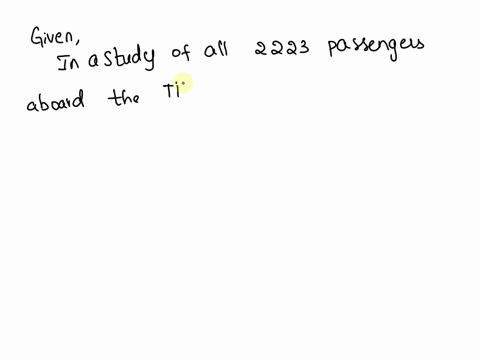 Given,
In a study of all 2223 passengers
aboard the Ti